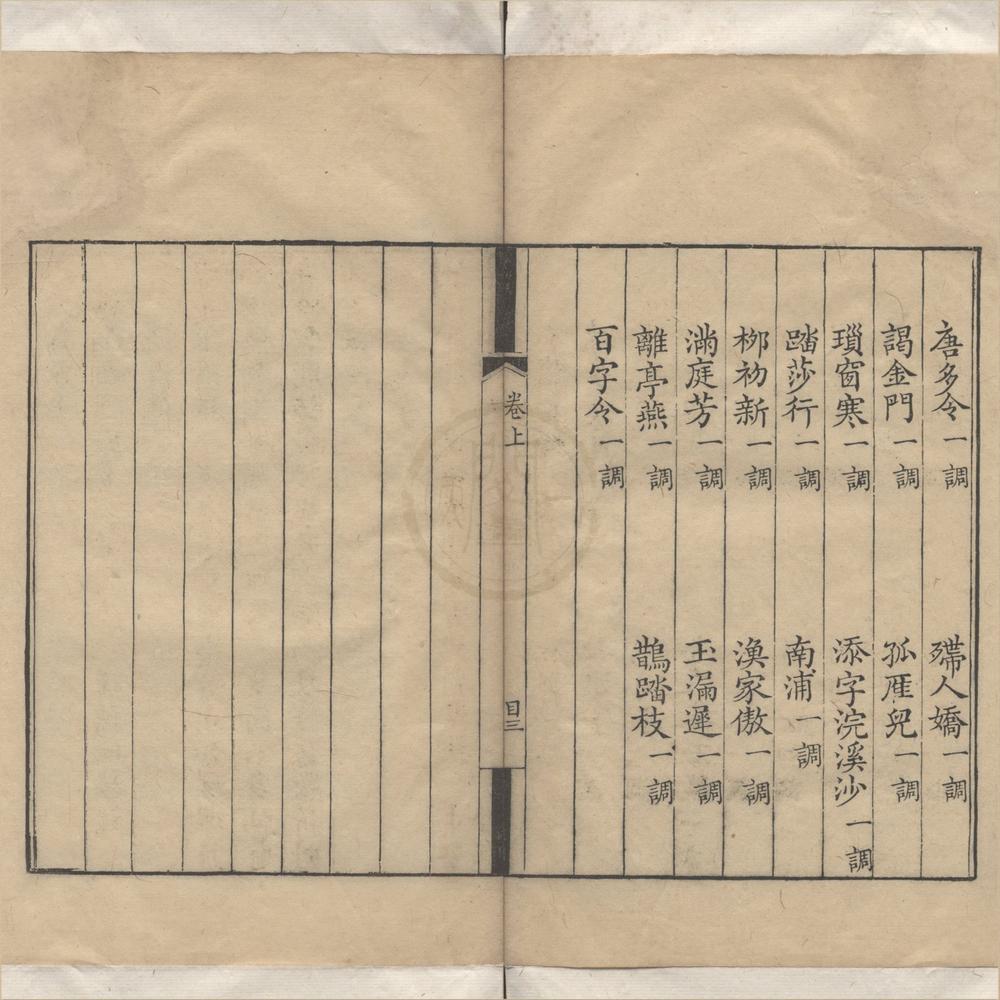 唐多令一調　殢人嬌一調
謁金門一調　孤雁兒一調
瑣窗寒一調　添字浣溪沙一調
踏莎行一調　南浦一調
柳初新一調　漁家傲一調
滿庭芳一調　玉漏遲一調
離亭燕一調　鵲踏枝一調
百字令一調
卷上　目三